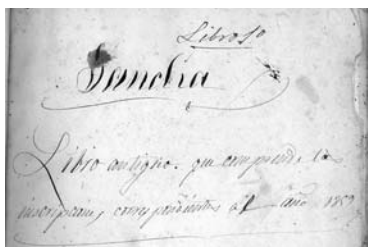 Libro 1º
Sancha
Libro antiguo. que comprende las
inscripciones correspondientes al año 1859